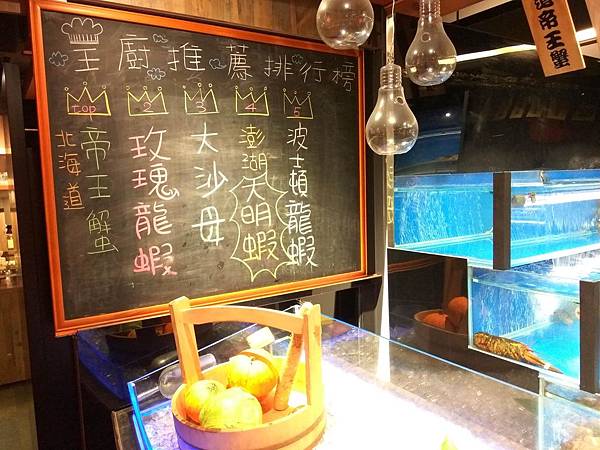 王廚推薦排行榜
TOP
北海道
帝王蟹
2
玫瑰龍蝦
3
大沙母
4
澎湖
天明蝦
5
波士頓龍蝦
帝王蟹